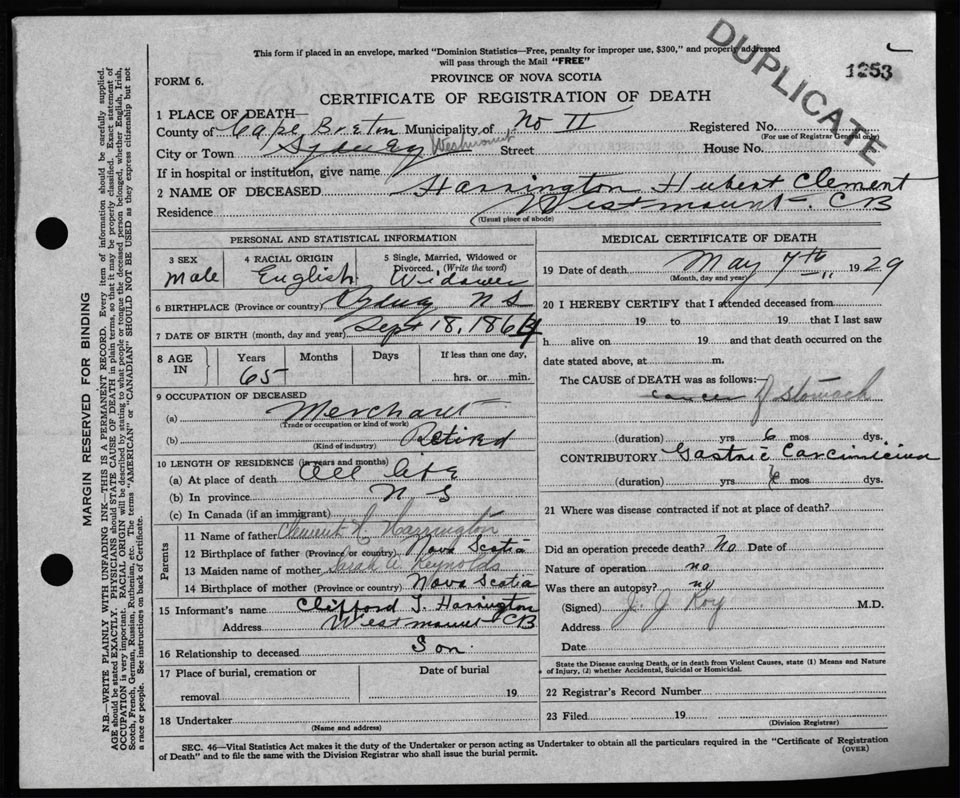 This form if placed in an envelope, marked "Dominion Statistics—Free, penalty for improper use, $300," and properly addressed
will pass through the Mail "FREE"
DUPLICATE
1253
FORM 6.
PROVINCE OF NOVA SCOTIA
CERTIFICATE OF REGISTRATION OF DEATH
1 PLACE OF DEATH—
County of Cape Breton Municipality of No II Registered No.
(For use of Registrar General only)
City or Town Sydney Westmount Street House No.
If in hospital or institution, give name
2 NAME OF DECEASED Harrington Hubert Clement
Residence Westmount CB
(Usual place of abode)
PERSONAL AND STATISTICAL INFORMATION
3 SEX
Male
4 RACIAL ORIGIN
English
5 Single, Married, Widowed or
Divorced. (Write the word)
Widower
6 BIRTHPLACE (Province or country) Sydney N S
7 DATE OF BIRTH (month, day and year) Sept 18, 1864
8 AGE IN
Years Months Days If less than one day,
65 hrs. or min.
9 OCCUPATION OF DECEASED
(a) Merchant
(Trade or occupation or kind of work)
(b) Retired
(Kind of industry)
10 LENGTH OF RESIDENCE (in years and months)
(a) At place of death All life
(b) In province N S
(c) In Canada (if an immigrant)
Parents
11 Name of father Clement Harrington
12 Birthplace of father (Province or country) Nova Scotia
13 Maiden name of mother Sarah A Reynolds
14 Birthplace of mother (Province or country) Nova Scotia
15 Informant's name Clifford J. Harrington
Address Westmount CB
16 Relationship to deceased Son
17 Place of burial, cremation or
removal
Date of burial
19
18 Undertaker
(Name and address)
MEDICAL CERTIFICATE OF DEATH
19 Date of death May 7th 1929
(Month, day and year)
20 I HEREBY CERTIFY that I attended deceased from
19 to 19 that I last saw
h alive on 19 and that death occurred on the
date stated above, at m.
The CAUSE of DEATH was as follows:—
cancer of stomach
(duration) yrs 6 mos dys.
CONTRIBUTORY Gastric Carcinicina
(duration) yrs mos dys.
21 Where was disease contracted if not at place of death?
Did an operation precede death? No Date of
Nature of operation no
Was there an autopsy? no
(Signed) J. J. Roy M.D.
Address
Date
State the Disease causing Death, or in death from Violent Causes, state (1) Means and Nature
of Injury, (2) whether Accidental, Suicidal or Homicidal.
22 Registrar's Record Number
23 Filed 19
(Division Registrar)
SEC. 46—Vital Statistics Act makes it the duty of the Undertaker or person acting as Undertaker to obtain all the particulars required in the "Certificate of Registration
of Death" and to file the same with the Division Registrar who shall issue the burial permit.
(OVER)
MARGIN RESERVED FOR BINDING
N.B.—WRITE PLAINLY WITH UNFADING INK—THIS IS A PERMANENT RECORD. Every item of information should be carefully supplied.
AGE should be stated EXACTLY. PHYSICIANS should STATE CAUSE OF DEATH in plain terms, so that it may be properly classified. Exact statement of
OCCUPATION is very important. RACIAL ORIGIN will be described by stating to what people or tongue the deceased person belonged, whether English, Irish,
Scotch, French, German, Russian, Ruthenian, etc. The terms "AMERICAN" or "CANADIAN" SHOULD NOT BE USED as they express citizenship but not
a race or people. See instructions on back of Certificate.